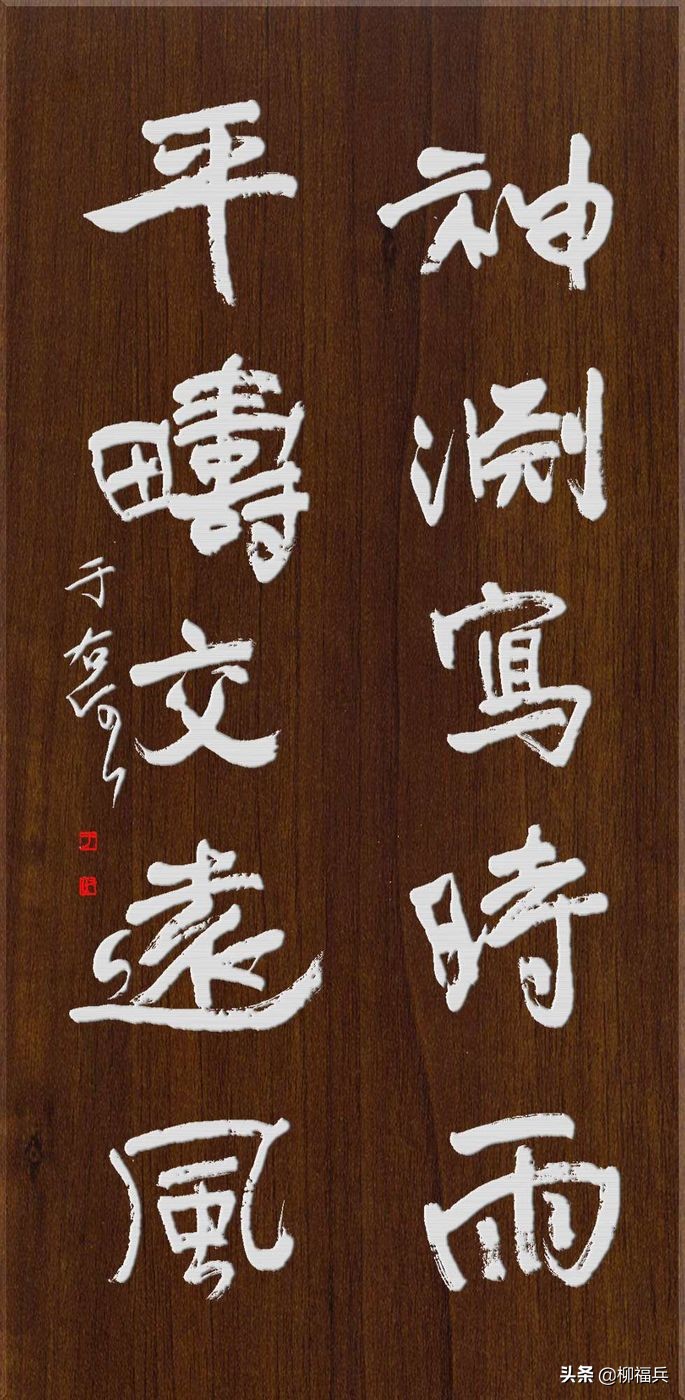 神淵寫時雨
平疇交遠風
于右任
头条 @柳福兵